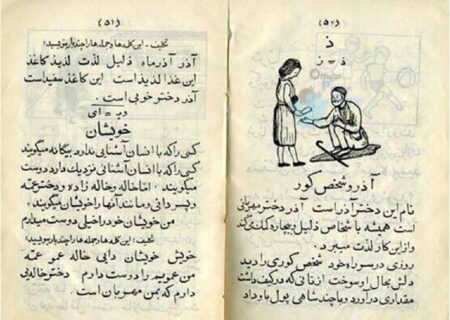 (۵۰)
ذ
ذ = ز
آذر و شخص کور
نام این دختر آذر است آذر دختر مهربانی
است همیشه با شخاص ذلیل و بیچاره کمک میکند
و از این کار لذت میبرد
روزی در سر راه خود شخص کوری را دید
دلش بحال او سوخت از نانی که در کیف داشت
مقداری در آورد و با چند شاهی پول باو داد
(۵۱)
تکلیف : این کلمه ها و جمله ها را چند بار بنویسید :
آذر آذرماه ذلیل لذت لذیذ کاغذ
این غذا لذیذ است این کاغذ سفید است
آذر دختر خوبی است .
خویشان
کسی را که با انسان آشنایی ندارد بیگانه میگویند
کسی را که با انسان آشنائی نزدیک دارد دوست
میگویند . اما خاله و خاله زاده و دختر عمه
و پسر دائی و مانند آنها را خویشان میگویند .
من خویشان خود را خیلی دوست میدارم
تکلیف : این کلمه ها و جمله ها را چند بار بنویسید :
خویش خویشان دایی خاله عمو عمه
من عمویم را دوست دارم دختر خاله یی
دارم که بمن مهربان است .